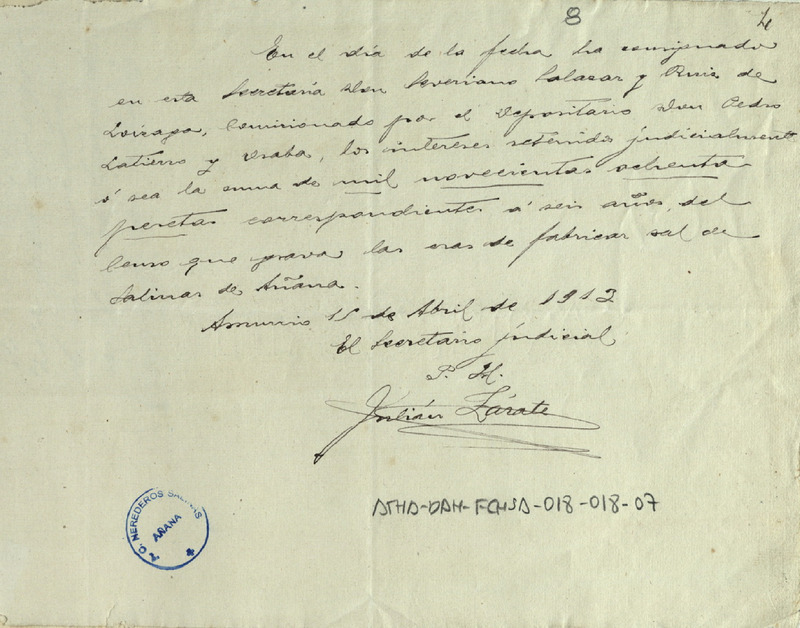 8 4
En el día de la fecha ha consignado
en esta Secretaría Don Severiano Salazar y Ruiz de
Loizaga, comisionado por el Depositario Don Pedro
Latierro y Usaba, los intereses retenidos judicialmente
ó sea la suma de mil novecientas ochenta
pesetas correspondientes á seis años, del
Censo que grava las eras de fabricar sal de
Salinas de Añana.
Amurrio 15 de Abril de 1912
El Secretario judicial
P. H.
Julián Zárate
ATHA-DAH-FCHSA-018-018-07
HEREDEROS SALINAS
AÑANA